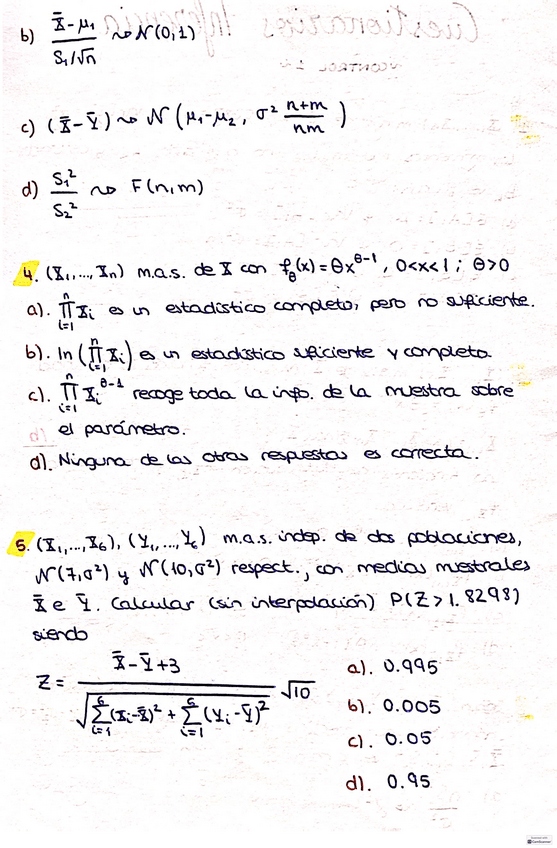 b) X̄-μ₁ / S₁/√n ~> N(0,1)
c) (X̄-Ȳ) ~> N(μ₁-μ₂, σ² n+m / nm)
d) S₁² / S₂² ~> F(n,m)
4. (X₁,...,Xn) m.a.s. de X con fθ(x)=θx^θ-1, 0<x<1; θ>0
a). ∏ᵢ₌₁ⁿ Xi es un estadístico completo, pero no suficiente.
b). ln(∏ᵢ₌₁ⁿ Xi) es un estadístico suficiente y completo.
c). ∏ᵢ₌₁ⁿ Xi^θ-1 recoge toda la info. de la muestra sobre
el parámetro.
d). Ninguna de las otras respuestas es correcta.
5. (X₁,...,X₆), (Y₁,...,Y₆) m.a.s. indep. de dos poblaciones,
N(7,σ²) y N(10,σ²) respect., con medias muestrales
X̄ e Ȳ. Calcular (sin interpolación) P(Z>1.8298)
siendo
Z = X̄-Ȳ+3 / √(∑ᵢ₌₁⁶(Xi-X̄)² + ∑ᵢ₌₁⁶(Yi-Ȳ)²) √10
a). 0.995
b). 0.005
c). 0.05
d). 0.95
CamScanner